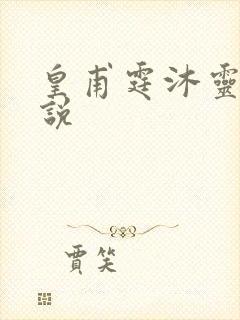 皇甫霆沐靈
說
賈笑